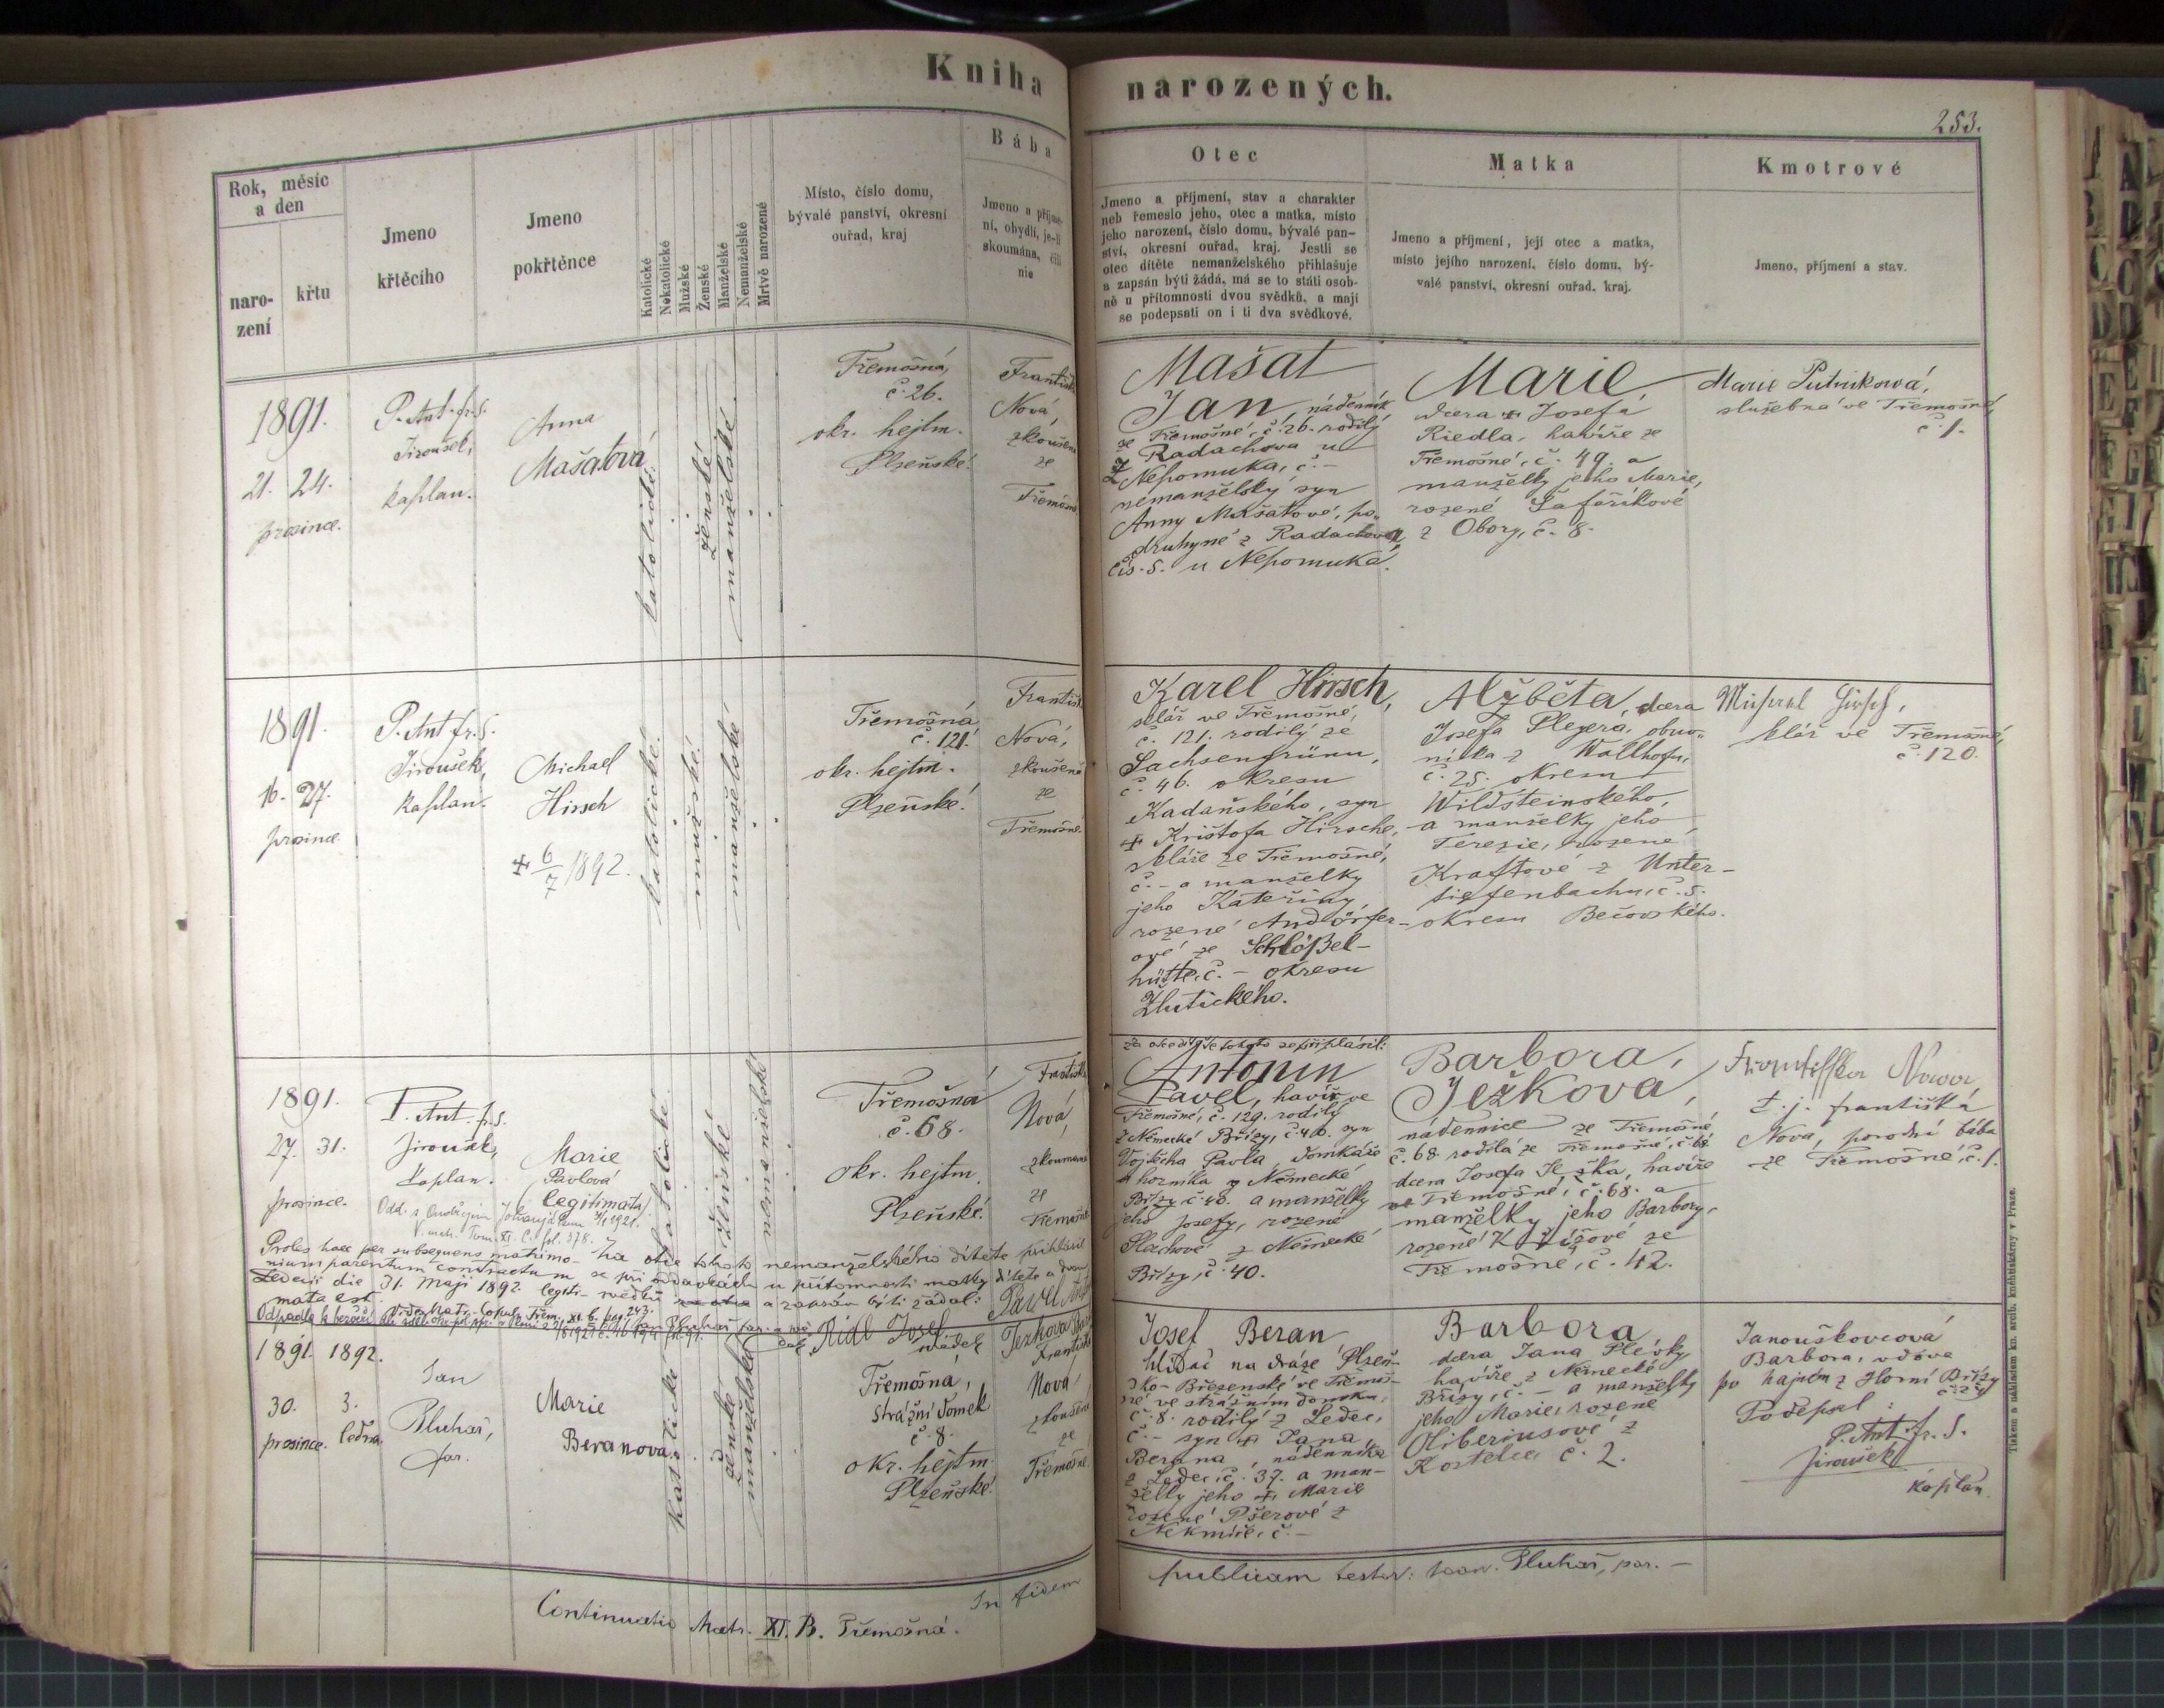 Kniha narozených.
253.
Rok, měsíc
a den
naro-
zení
křtu
Jmeno
křtěcího
Jmeno
pokřtěnce
Katolické
Nekatolické
Mužské
Ženské
Manželské
Nemanželské
Mrtvě narozené
Místo, číslo domu,
bývalé panství, okresní
ouřad, kraj
Bába
Jmeno a příjme-
ní, obydlí, je-li
skoumána, čili
nic
Otec
Jmeno a příjmení, stav a charakter
neb řemeslo jeho, otec a matka, místo
jeho narození, číslo domu, bývalé pan-
ství, okresní ouřad, kraj. Jestli se
otec dítěte nemanželského přihlašuje
a zapsán býti žádá, má se to státi osob-
ně u přítomnosti dvou svědků, a mají
se podepsati on i ti dva svědkové.
Matka
Jmeno a příjmení, její otec a matka,
místo jejího narození, číslo domu, bý-
valé panství, okresní ouřad, kraj.
Kmotrové
Jmeno, příjmení a stav.
1891.
21. 24.
prosince.
P. Ant. fr. S.
Jiroušek,
kaplan.
Anna
Mašatová
katolické.
ženské
manželské.
Třemošná,
č. 26.
okr. hejtm.
Plzeňské.
Františka
Nová,
zkoušená
ze
Třemošné
Mašat
Jan, nádenník
ze Třemošné, č. 26. rodilý
z Radachova u
Nepomuka, č. -
nemanželský syn
Anny Mašatové, po-
druhyně z Radachova,
čís. 5. u Nepomuka.
Marie,
dcera + Josefa
Riedla, havíře ze
Třemošné, č. 49. a
manželky jeho Marie,
rozené Šafaříkové
z Obory, č. 8.
Marie
služebná ve Třemošné,
č. 1.
1891.
16. 27.
prosince.
P. Ant. fr. S.
Jiroušek,
kaplan.
Michael
Hirsch
+ 6/7 1892.
katolické.
mužské.
manželské
Třemošná
č. 121.
okr. hejtm.
Plzeňské.
Františka
Nová,
zkoušená
ze
Třemošné.
Karel Hirsch,
sklář ve Třemošné,
č. 121. rodilý ze
Sachsengrünu,
č. 46. okresu
Kadaňského, syn
+ Krištofa Hirsche,
skláře ze Třemošné,
č. - a manželky
jeho Kateřiny,
rozené Andörfer-
ové ze Schlößel-
hütte, č. - okresu
Žlutického.
Alžběta, dcera
Josefa Plegera, obuv-
níka z Wallhofu,
č. 25. okresu
Wildšteinského,
a manželky jeho
Terezie, rozené
Kraftové z Unter-
tiefenbachu, č. 5.
okresu Bečovského.
Michael Hirsch,
sklář ve Třemošné,
č. 120.
1891.
27. 31.
prosince.
P. Ant. fr. S.
Jiroušek,
kaplan.
Marie
Pavlová
legitimata
katolické
ženské
nemanželské
Třemošná
č. 68.
okr. hejtm.
Plzeňské.
Františka
Nová,
zkoumaná
ze
Třemošné
za otce dítěte tohoto se přihlásil:
Antonín
Pavel, havíř ve
Třemošné, č. 129. rodilý
z Německé Břízy, č. 40. syn
Vojtěcha Pavla, domkáře
a horníka z Německé
Břízy č. 40. a manželky
jeho Josefy, rozené
z Německé
Břízy, č. 40.
Barbora,
Ježková,
nádennice ze Třemošné,
č. 68. rodilá ze Třemošné, č. 68
dcera Josefa Ježka, havíře
ve Třemošné, č. 68. a
manželky jeho Barbory,
rozené Křížové ze
Třemošné, č. 42.
Františka Nowa,
t. j. františka
Nová, porodní bába
ze Třemošné, č. 1.
Proles haec per subsequens matrimo-
nium parentum contractum
Ledecii die 31. Maji 1892. legiti-
mata est.
Za otce tohoto nemanželského dítěte přihlásil
se při oddavkách u přítomnosti matky dítěte a dvou
svědků a zapsán býti žádal:
Ridl Josef
svědek
1891. 1892.
30. 3.
prosince. ledna.
Jan
Pluhař,
far.
Marie
Beranova.
katolické
ženské
manželské
Františka
Nová
zkoušená
ze
Třemošné.
Třemošná,
strážní domek
č. 8.
okr. hejtm.
Plzeňské.
Josef Beran,
hlídač na dráze Plzeň-
sko-Březenské ve Třemoš-
né ve strážním domku,
č. 8. rodilý z Ledec,
č. - syn + Jana
Berana, nádenníka
z Ledec, č. 37. a man-
želky jeho + Marie
rozené Pšerové z
Nekmíře, č. -
Barbora
dcera Jana Plevky,
havíře z Německé
Břízy, č. - a manželky
jeho Marie, rozené
Oliberiusové z
Kostelce č. 2.
Janouškovcová
Barbora, vdova
po hajném z Horní Břízy
Podepsal:
P. Ant. fr. S.
Jiroušek
kaplan
Continuatio Matr. XI. B. Třemošná.
In fidem
publicam testor: Joan. Pluhař, par. -
Tiskem a nákladem kn. arcib. knihtiskárny v Praze.